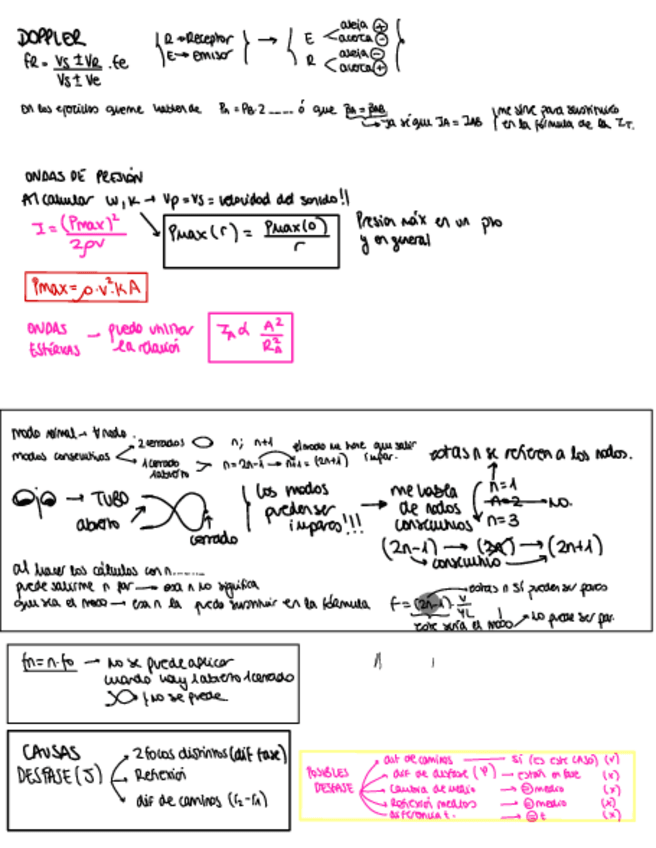 DOPPLER
fR = Vs ± VR / Vs ± Ve · fe
R → Receptor
E → Emisor
E aleja ⊕
acerca ⊖
R aleja ⊖
acerca ⊕
En los ejercicios que me hablen de PA = PB·2 ...... ó que βA = βAB
ya sé que IA = IAB
me sirve para sustituirlo
en la fórmula de la IT.
ONDAS DE PRESIÓN
Al calcular w, k → Vp = Vs = velocidad del sonido!!
I = (Pmax)² / 2ρv
Pmax(r) = Pmax(0) / r
Presion máx en un pto
y en general
Pmax = ρ·v²·k·A
ONDAS ESFÉRICAS — puedo utilizar la relación
IA α A² / RA²
modo normal →
modos consecutivos
2 cerrados n; n+1
1 cerrado
1 abierto
n = 2n-1 → n+1 = (2n+1)
el modo me tiene que salir
impar.
estas n se refieren a los nodos.
Ojo → TUBO
abierto
cerrado
los modos
pueden ser
impares!!!
me habla
de nodos
consecutivos
n=1
n=2 — NO.
n=3
(2n-1) → (2n) → (2n+1)
consecutivo
al hacer los cálculos con n.......
puede salirme n par → esa n no significa
que sea el modo → esa n la puedo sustituir en la fórmula
f = (2n-1)·V/4L
estas n sí pueden ser pares
este sería el modo → No puede ser par.
fn = n·fo → No se puede aplicar
cuando hay 1 abierto 1 cerrado
no se puede
CAUSAS
DESFASE (J)
2 focos distintos (dif fase)
Reflexión
dif de caminos (r2-r1)
POSIBLES
DESFASE
dif de caminos — sí (es este caso) (v)
dif de desfase (φ) → están en fase (x)
cambia de medio → ⊜ medio (x)
Reflexión medios → ⊜ medio (x)
diferencia t. → ⊜ t (x)